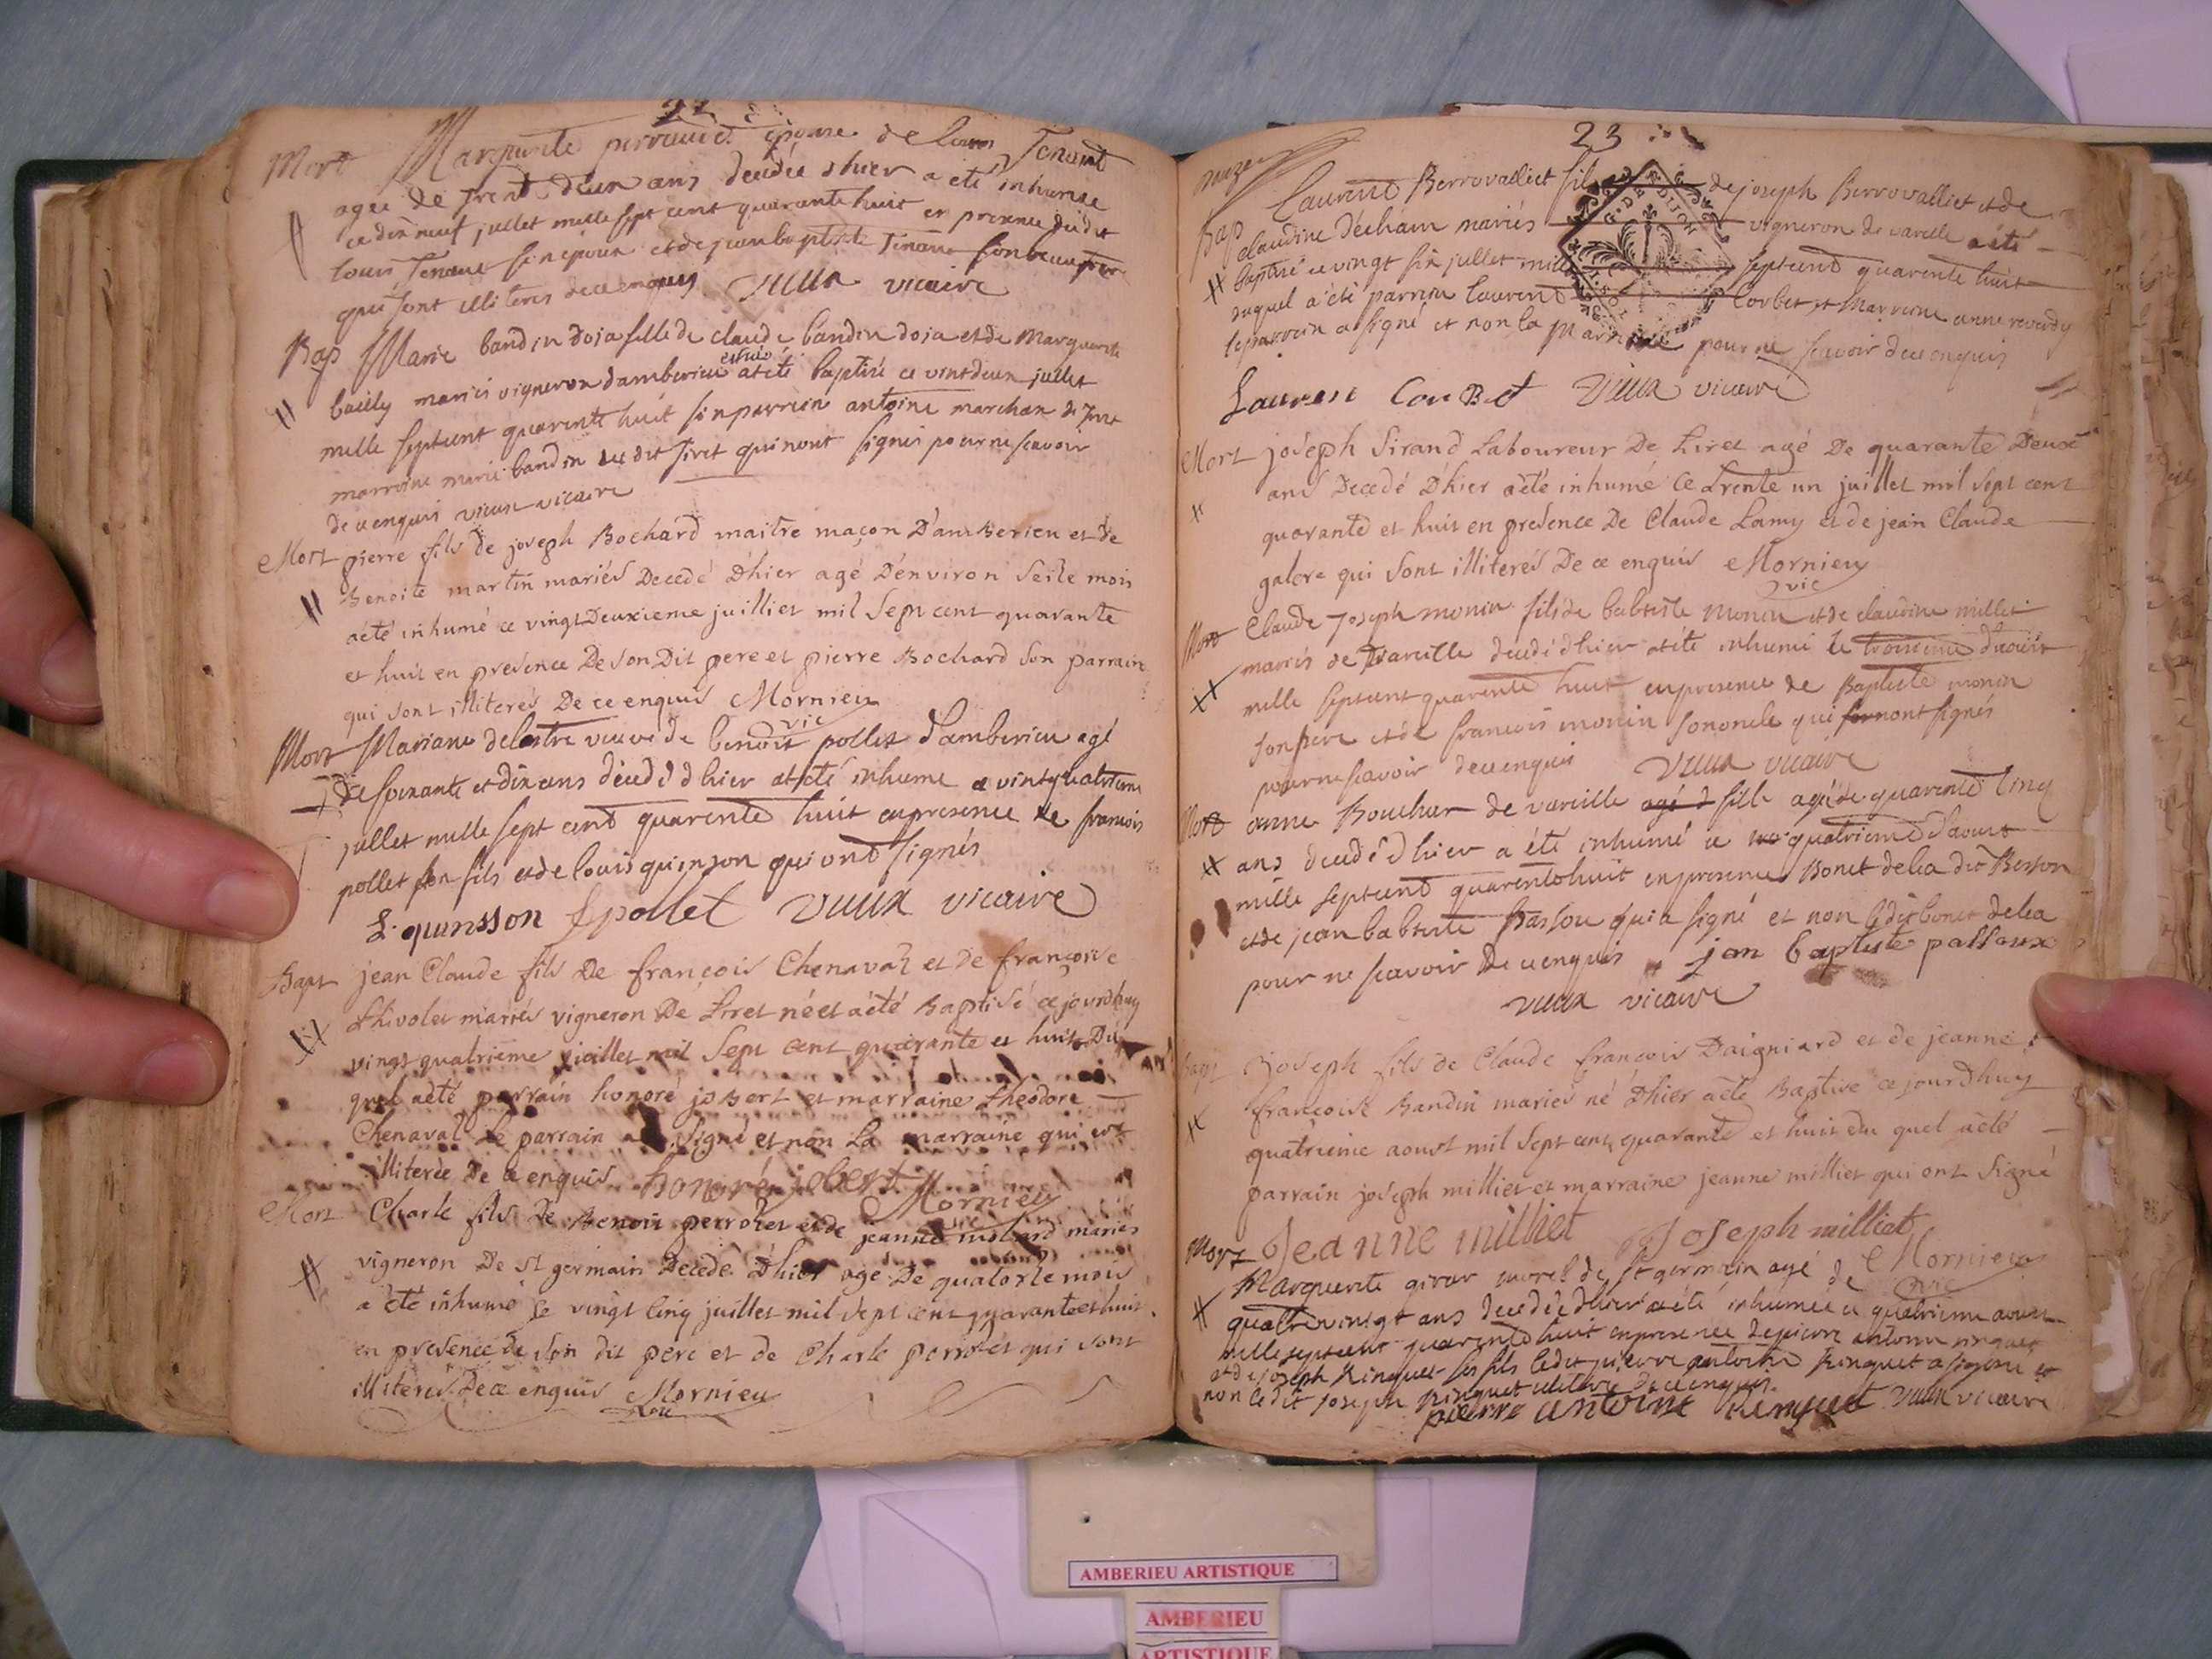 22
Mort Marguerite perraud épouse de louis Tenant
agée de trent deux ans decedée dhier a eté inhumée
ce dix neuf jullet mille sept cent quarante huit en presence dudit
louis Tenant son epoux et de jean baptiste Tenant son beau pere
qui sont illiteres de ce enquis vieux vicaire
Bap Marie bandin doja fille de claude bandin doja et de Marguerite
bailly mariés vigneron damberieu est née
at eté baptisé ce vint deux jullet
mille septcent quarente huit son parrein antoine marchan de
marreine marie bandin dudit tiret qui nont signés pour ne scavoir
de ce enquis vieux vicaire
Mort pierre fils de joseph Bochard maitre maçon D'amberieu et de
Benoite martin mariés Decedé D'hier agé D'environ seize mois
aété inhumé ce vingt Deuxieme juillet mil sept cent quarante
et huit en presence De son Dit pere et pierre Bochard son parrain
qui sont illiterés De ce enquis Mornieu
vic
Mort Mariane delastre veuve de benoit pollet damberieu agé
de soixante et dix ans décédé d hier at eté inhumé ce vint quatrieme
jullet mille sept cent quarente huit en presence de francois
pollet son fils et de louis quinson qui ont signés
L. quinsson f pollet vieux vicaire
Bapt jean Claude fils De françois Chenaval et de françoise
Thivolet mariés vigneron De Tiret né et aété Baptisé ce jourdhuy
vingt quatrième juillet mil sept cent quarante et huit Du
quel aété parrain honoré jobert et marraine theodore
Chenaval Le parrain a signé et non La marraine qui est
illiterée De ce enquis honoré jobert Mornieu
vic
Mort Charle fils De Benoit perrozet et de jeanne molard mariés
vigneron De St germain Decedé D'hier agé De quatorze mois
a été inhumé ce vingt cinq juillet mil sept cent quarante et huit
en presence de son dit pere et de Charle perrozet qui sont
illiterés De ce enquis Mornieu
vic
23
Laurent Berrovalliet fils de joseph Berrovalliet et de
Bap claudine décham mariés vigneron de vareille a eté
baptisé ce vingt six jullet mille septcent quarente huit
duquel a été parrein laurent Corbet et Marreine anne reverdy
le parrein a signé et non la Marreine pour ne scavoir de ce enquis
G. DE DIJON
Laurent CorBet vieux vicaire
Mort joseph Sirand Laboureur De Tiret agé De quarante Deux
ans Decedé D'hier aété inhumé Ce trente un juillet mil sept cent
quarante et huit en presence De Claude Lamy et de jean Claude
galere qui sont illiterés De ce enquis Mornieu
vic
Mort Claude Joseph monin fils de babtiste monin et de claudine millet
mariés de vareille decedé dhier at eté inhumé le troisieme daoust
mille septcent quarente huit en presence de Baptiste monin
son pere et de francois monin son oncle qui nont signés
pour ne scavoir de ce enquis vieux vicaire
Mort anne Bouchar de vareille fille agé de quarente cinq
ans decedé d hier a été inhumé ce quatrieme daoust
mille septcent quarente huit en presence Bonet delia dit Besson
et de jean babtiste passou qui a signé et non ledit bonet delia
pour ne scavoir de ce enquis jan baptiste passoux
vieux vicaire
Bapt Joseph fils de Claude françois Daigniard et de jeanne
françoise Bandin mariés né D'hier aété Baptisé ce jourdhuy
quatrieme aoust mil sept cent quarante et huit du quel aété
parrain joseph milliet et marraine jeanne milliet qui ont signé
Jeanne milliet Joseph milliet
Mornieu
vic
Mort Marguerite girar morel de st germain agé de
quatre vingt ans decedée dhier a eté inhumée ce quatrieme aoust
mille septcent quarente huit en presence de pierre antoine ringuet
et de joseph Ringuet ses fils ledit pierre antoine Ringuet a signé et
non ledit joseph Ringuet illiteré de ce enquis
pierre antoine Renguet vieux vicaire
AMBERIEU ARTISTIQUE
AMBERIEU
ARTISTIQUE